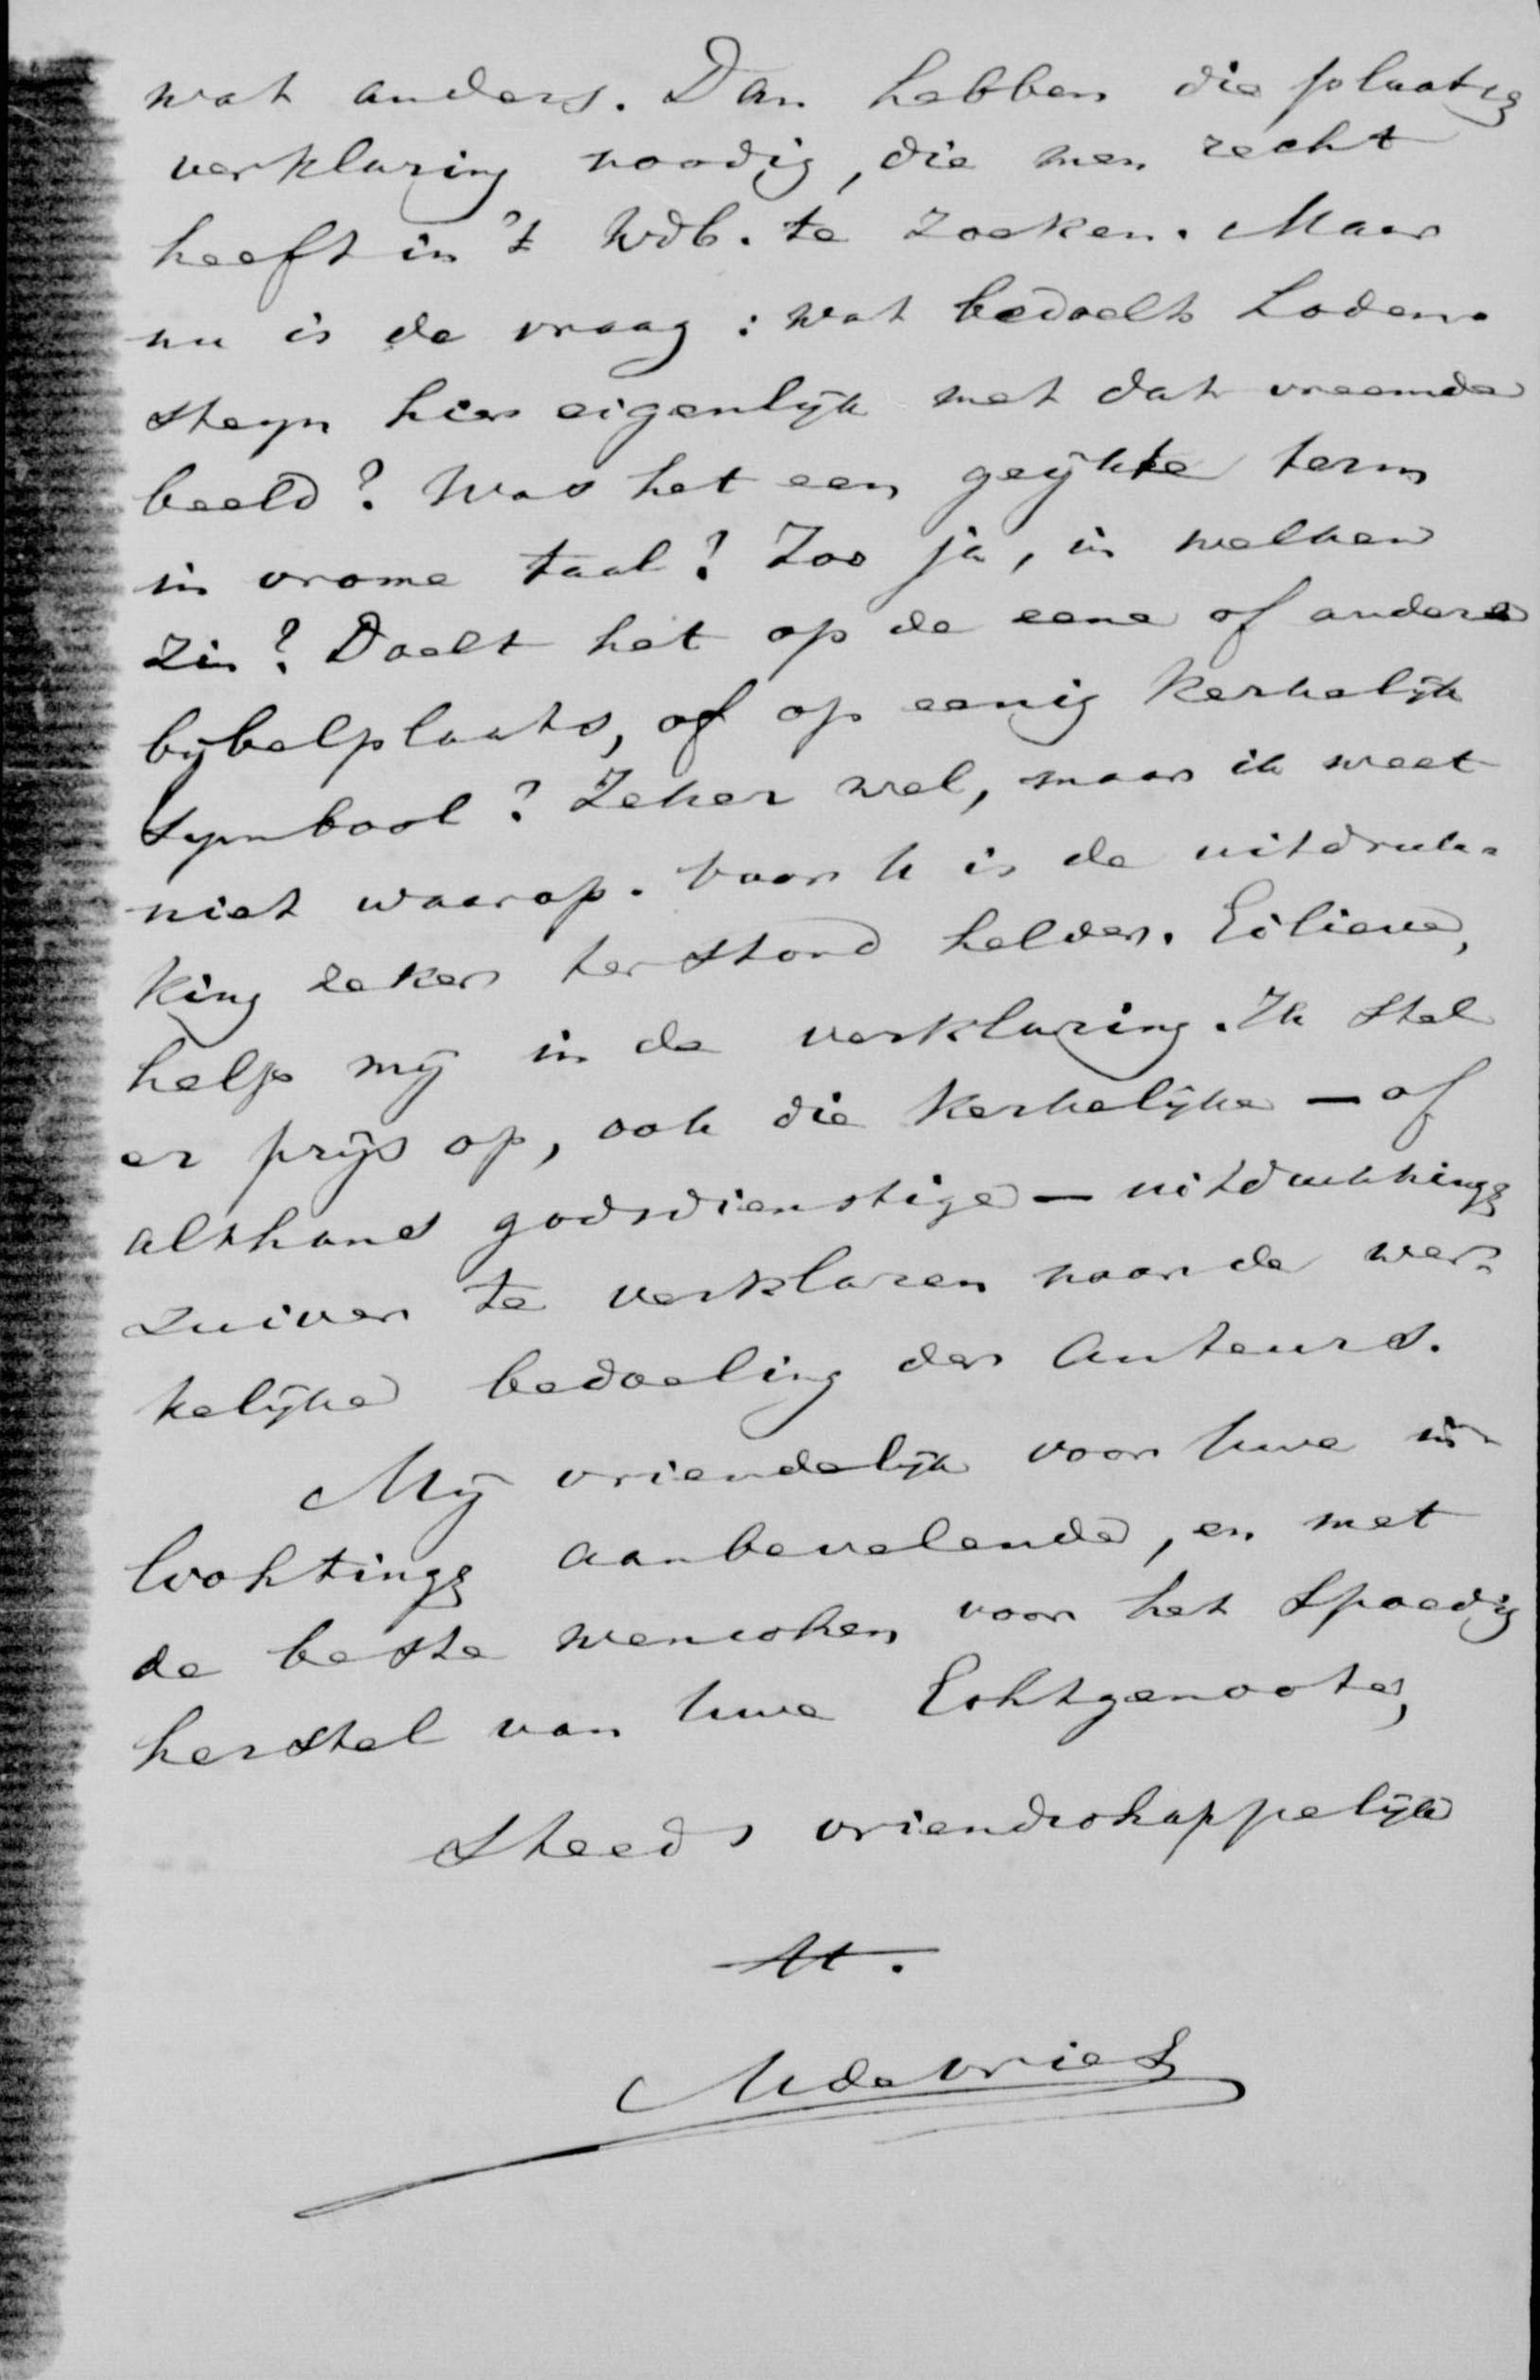 wat anders. Dan hebben die plaatsen
verklaring noodig, die men recht
heeft in 't Wdb. te zoeken. Maar
nu is de vraag: wat bedoelt Loden-
steyn hier eigenlijk met dat vreemde
beeld? Was het een geijkte term
in vrome taal? Zoo ja, in welken
zin? Doelt het op de eene of andere
bijbelplaats, of op eenig kerkelijk
symbool? Zeker wel, maar ik weet
niet waarop. Voor U is de uitdruk-
king zeker terstond helder. Eilieve,
help mij in de verklaring. Ik stel
er prijs op, ook die kerkelijke – of
althans godsdienstige – uitdrukkingen
zuiver te verklaren naar de wer-
kelijke bedoeling der auteurs.
Mij vriendelijk voor Uwe in-
lichtingen aanbevelende, en met
de beste wenschen voor het spoedig
herstel van Uwe Echtgenoote,
Steeds vriendschappelijk
tt.
M de Vries